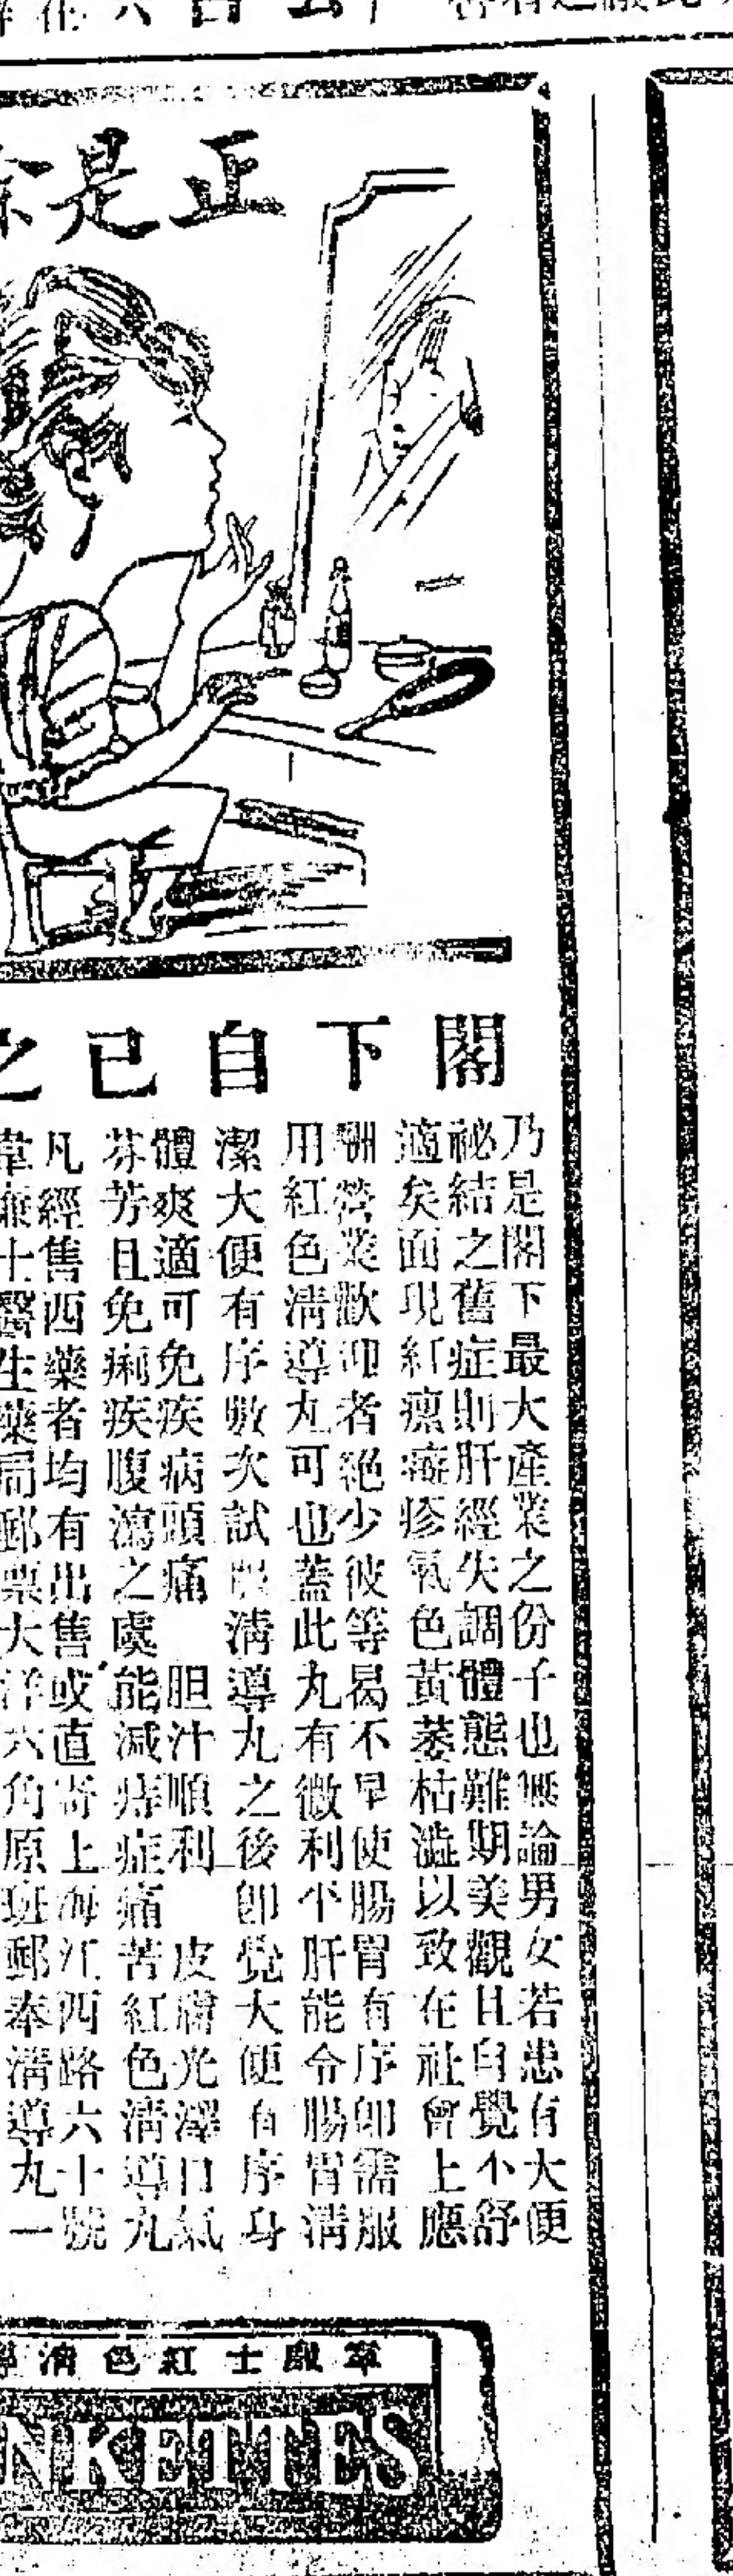 正是
閣下自己之
乃是閣下最大產業之份子也無論男女若患有大便
祕結之舊症則肝經失調體態難期美觀且自覺不舒
適矣面現紅瘰癬疹氣色黃萎枯澁以致在社會上應
酬營業歡迎者絕少彼等曷不早使腸胃有序卽需服
用紅色清導丸可也蓋此丸有微利平肝能令腸胃清
潔大便有序數次試服清導丸之後卽覺大便有序身
體爽適可免疾病頭痛 胆汁順利 皮膚光澤口氣
芬芳且免痢疾腹瀉之虞能減痔症痛苦紅色清導丸
凡經售西藥者均有出售或直寄上海江西路六十號
韋廉士醫生藥局郵票大洋六角原班郵奉清導丸一
韋廉士紅色清導
NKETTES